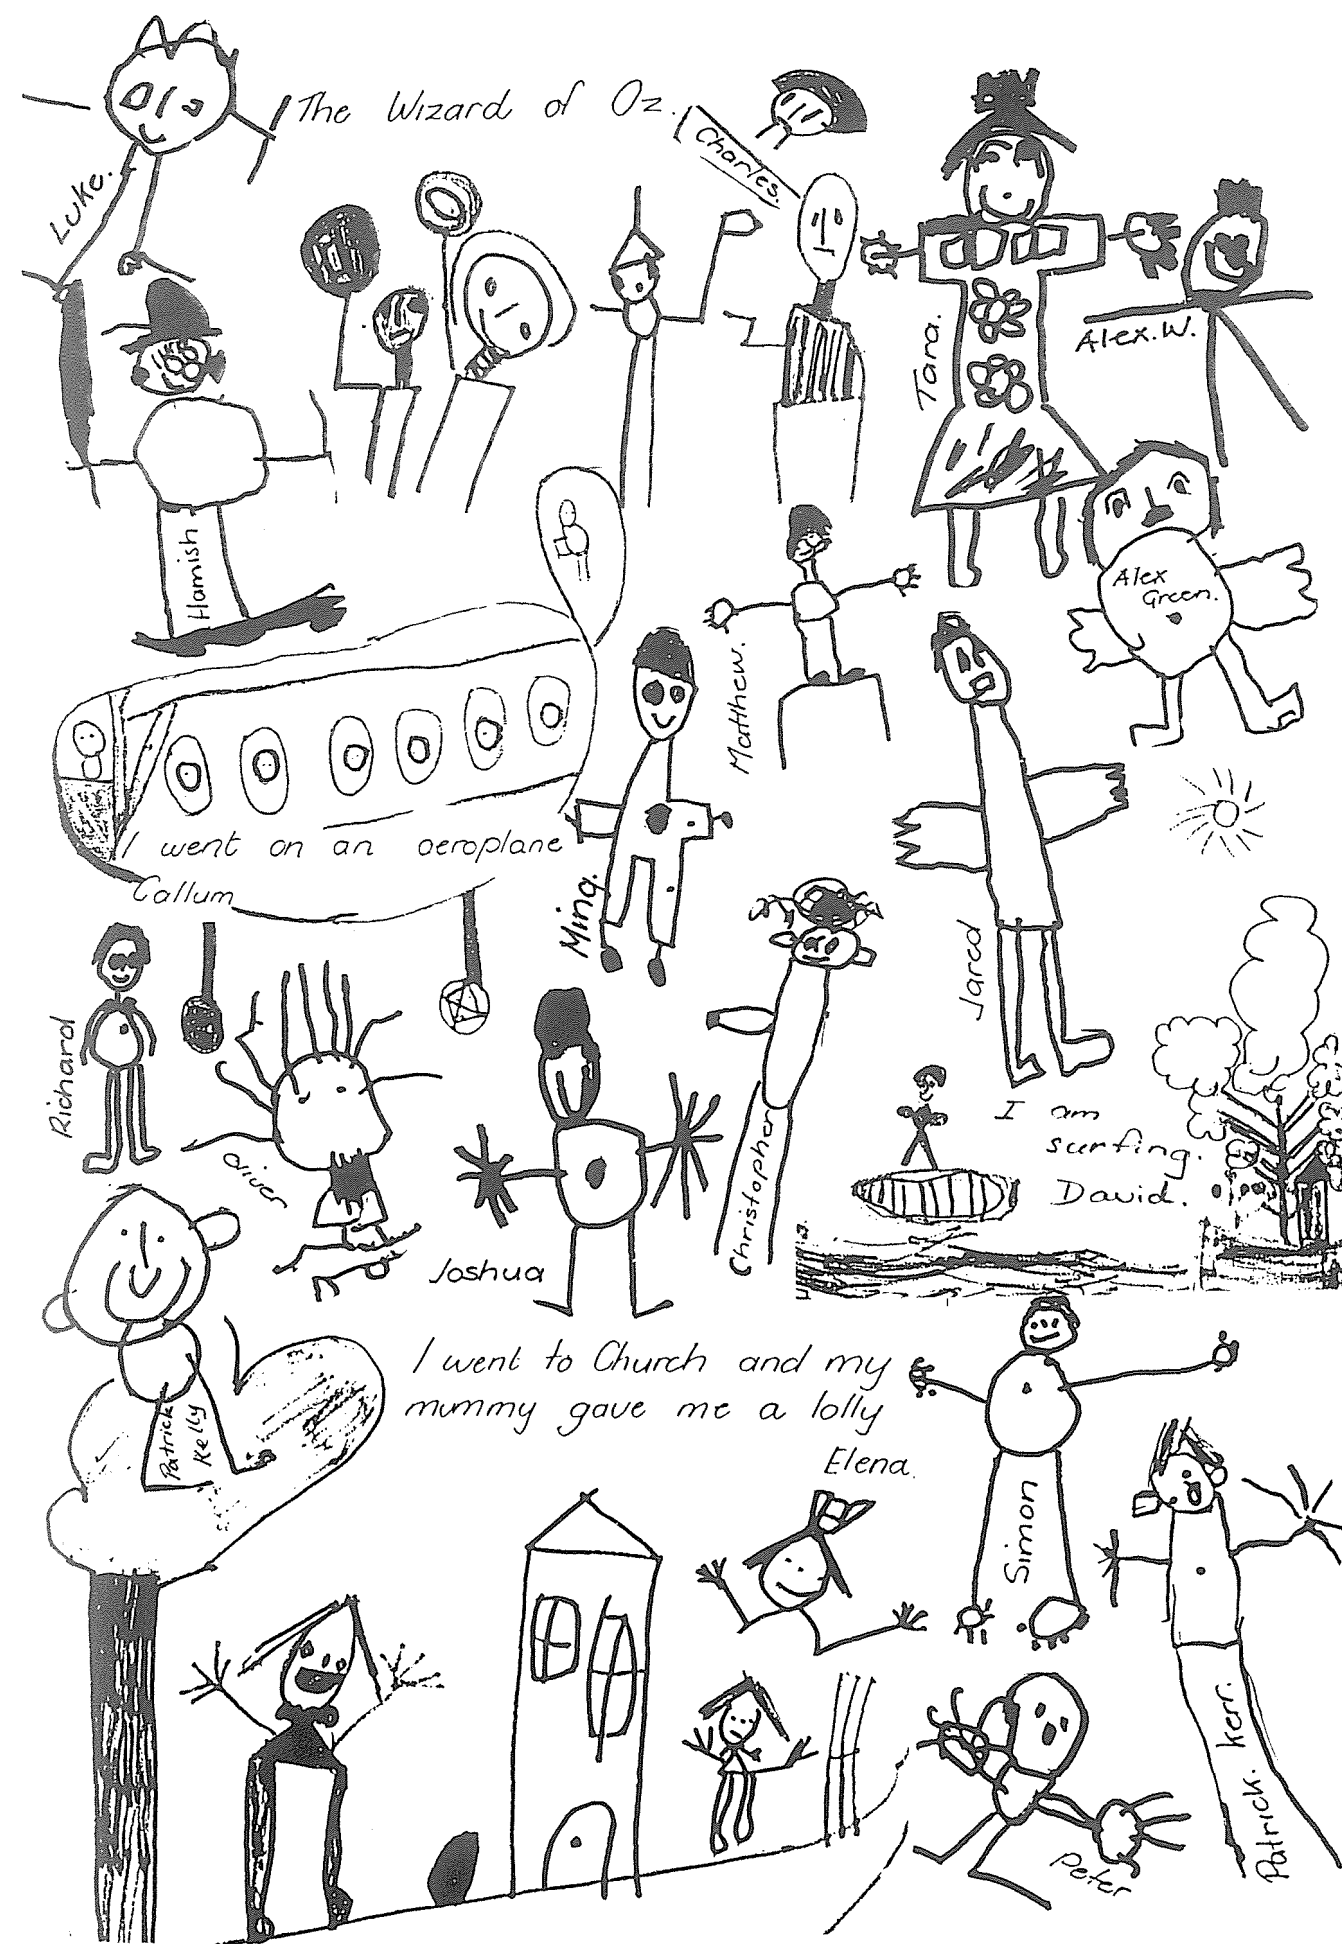 The Wizard of Oz.
Luke.
Charles.
Tara.
Alex.W.
Hamish
Alex
Green.
Matthew.
I went on an aeroplane
Callum
Ming.
Jared
Richard
Oliver
Christopher
I am
surfing.
David.
Joshua
I went to Church and my
mummy gave me a lolly
Elena.
Patrick
Kelly
Simon
Patrick. Kerr.
Peter